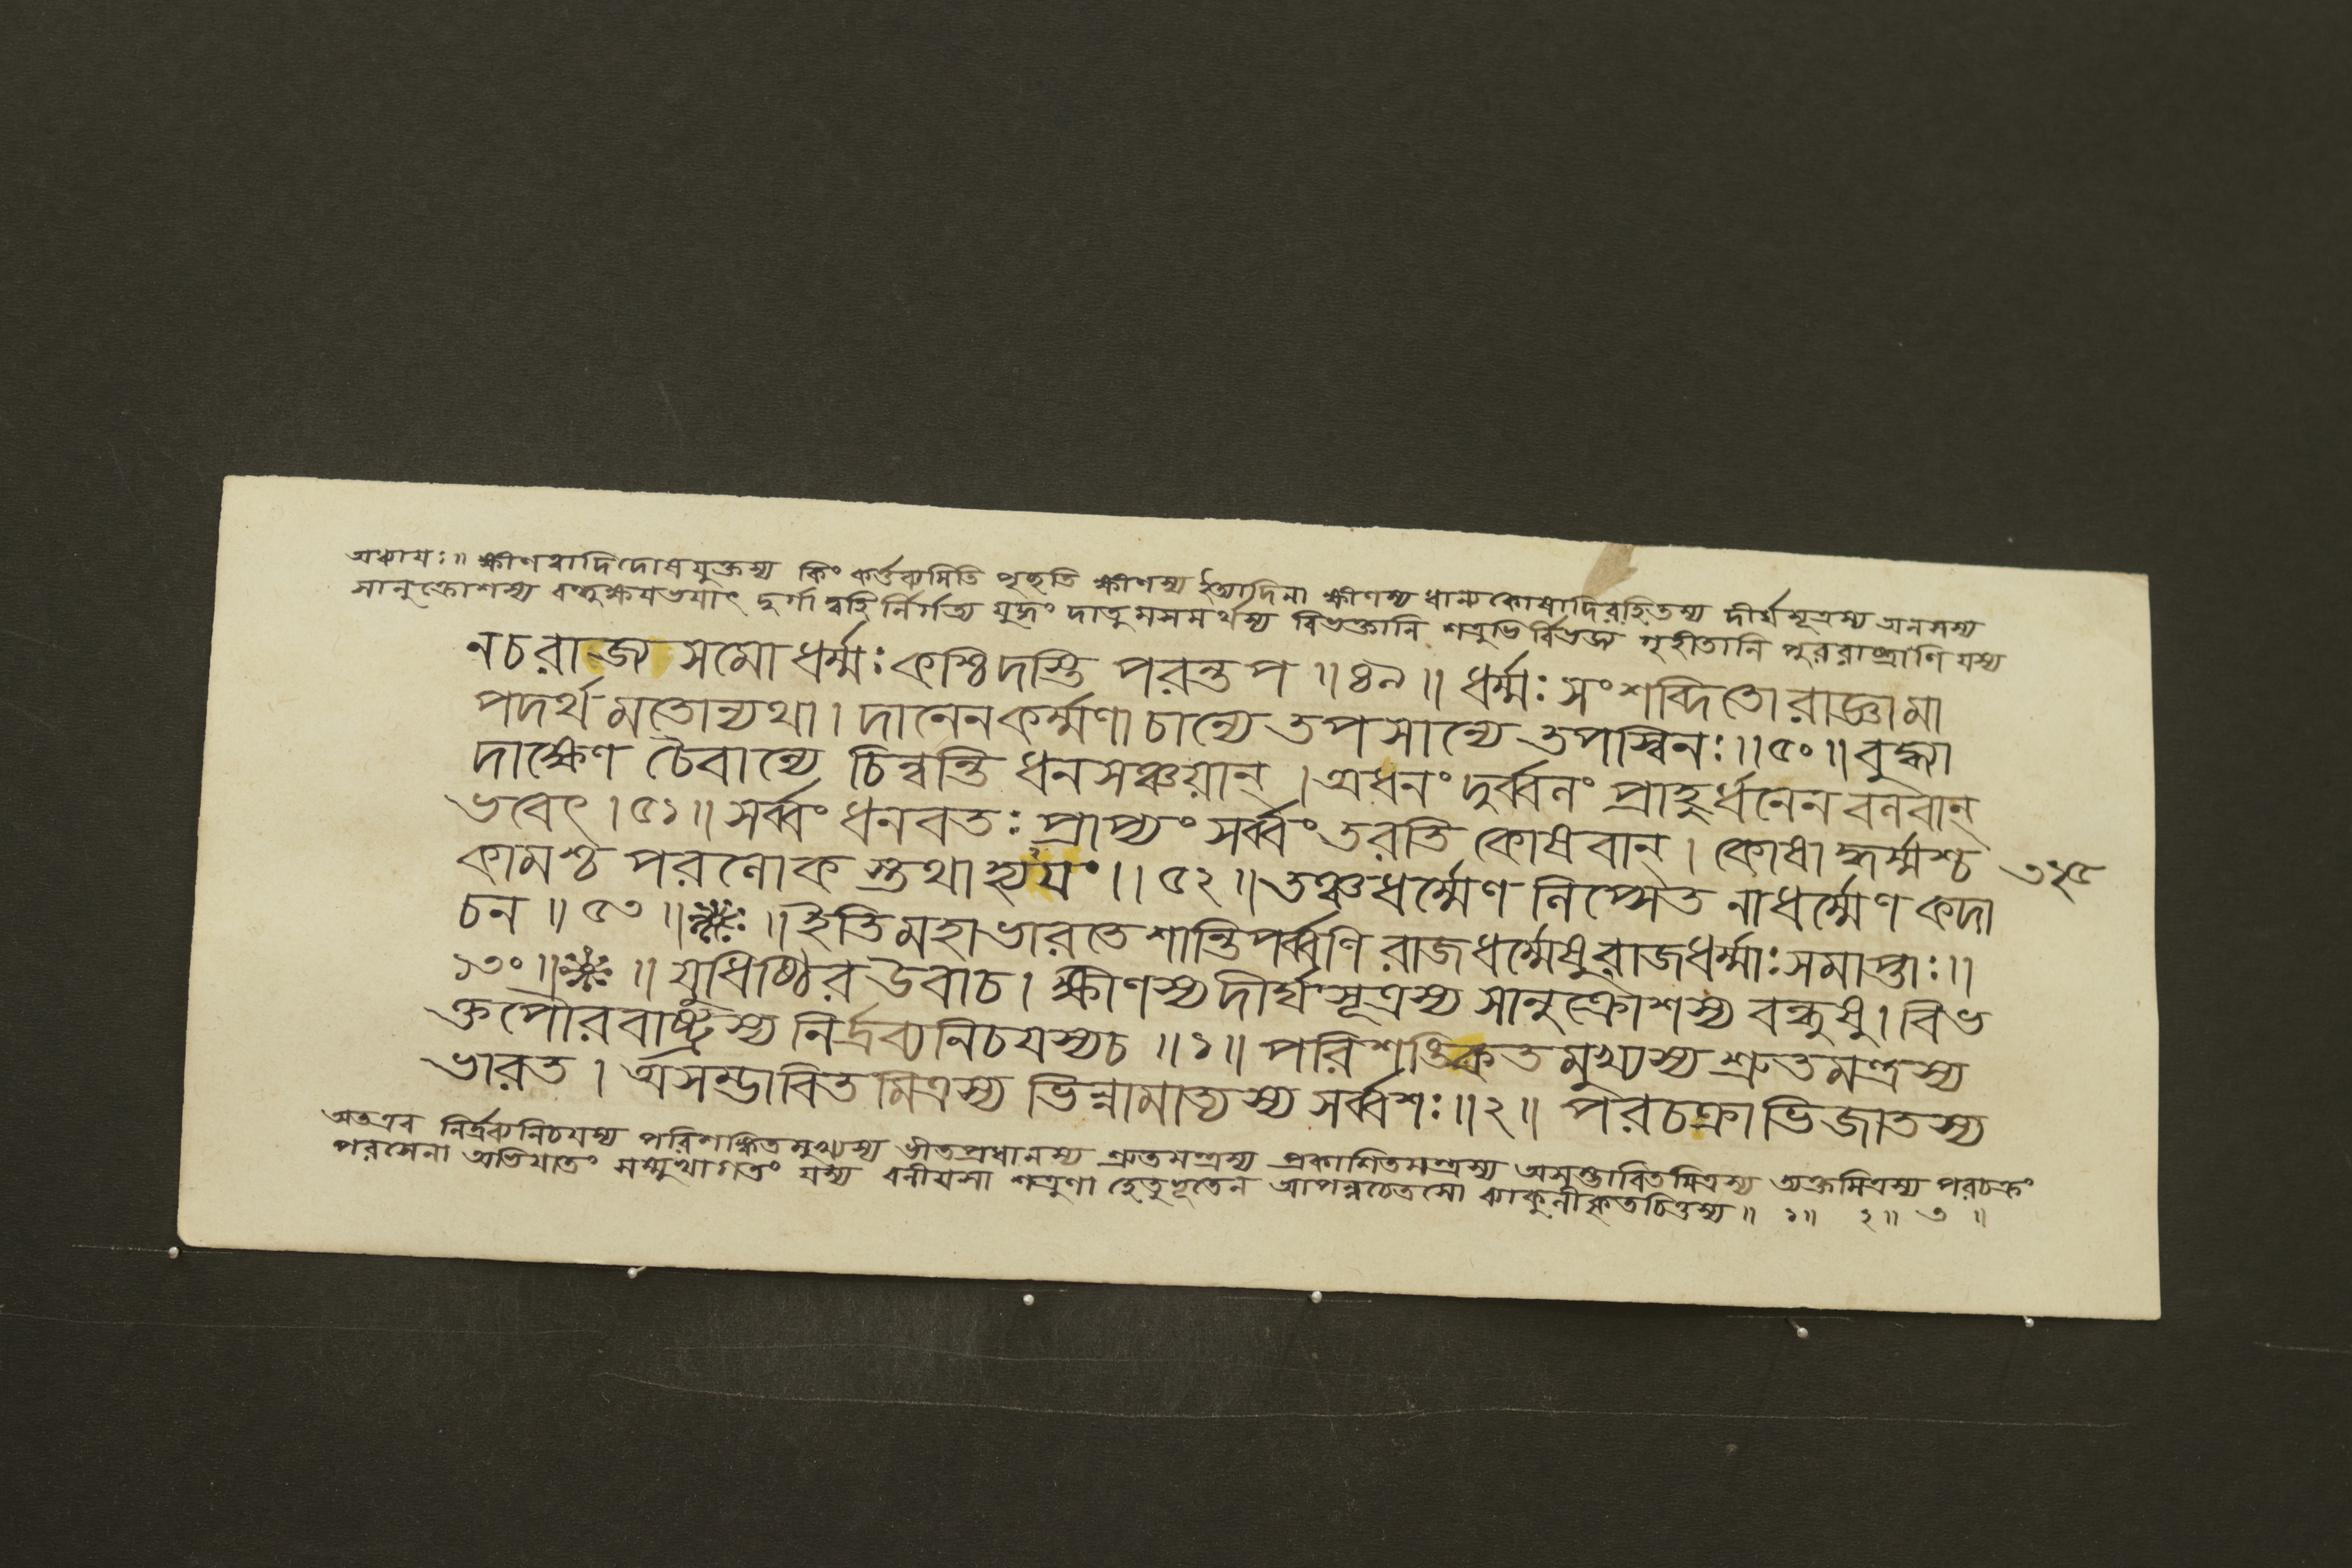 অধ্যায়ঃ॥ ক্ষীণত্বাদিদোষযুক্তস্য কিং কর্ত্তব্যমিতি পৃচ্ছতি ক্ষীণস্য ইত্যাদিনা ক্ষীণস্য ধান্যকোষাদিরহিতস্য দীর্ঘসূত্রস্য অলসস্য
সানুক্রোশস্য বন্ধুক্ষয়ভয়াৎ দুর্গাদ্বহির্নির্গত্য যুদ্ধং দাতুমসমর্থস্য বিভক্তানি শত্রুভির্বিভজ্য গৃহীতানি পুররাষ্ট্রাণি যস্য
নচরাজ্য সমো ধর্ম্মঃ কশ্চিদস্তি পরন্তপ ॥ ৪৯ ॥ ধর্ম্মঃ সংশব্দিতো রাজ্ঞামা
পদর্থমতোন্যথা। দানেনকর্ম্মণা চান্যে তপসান্যে তপস্বিনঃ॥ ৫০ ॥ বুদ্ধ্যা
দাক্ষেণ চৈবান্যে চিন্বন্তি ধনসঞ্চয়ান্ । অধনং দুর্ব্বলং প্রাহুর্ধনেন বলবান্
ভবেৎ । ৫১॥ সর্ব্বং ধনবতঃ প্রাপ্যং সর্ব্বং তরতি কোষবান্ । কোষাদ্ধর্ম্মশ্চ ৩২৫
কামশ্চ পরলোক স্তথাহ্যয়ং ॥ ৫২ ॥ তঞ্চধর্ম্মেণ লিপ্সেত নাধর্ম্মেণ কদা
চন ॥ ৫৩ ॥ ঃ ॥ ইতিমহাভারতে শান্তিপর্ব্বণি রাজধর্ম্মেষু রাজধর্ম্মাঃ সমাপ্তাঃ॥
১৩০ ॥ ঃ ॥ যুধিষ্ঠির উবাচ । ক্ষীণস্যদীর্ঘসূত্রস্য সানুক্রোশস্য বন্ধুষু । বিভ
ক্তপৌরবাষ্ট্রস্য নির্দ্রব্যনিচয়স্যচ ॥ ১॥ পরিশঙ্কিতমুখ্যস্য শ্রুতমন্ত্রস্য
ভারত । অসম্ভাবিতমিত্রস্য ভিন্নামাত্যস্য সর্ব্বশঃ॥২॥ পরচক্রাভিজাতস্য
অতএব নির্দ্রব্যনিচয়স্য পরিশঙ্কিতমুখ্যস্য ভীতপ্রধানস্য শ্রুতমন্ত্রস্য প্রকাশিতমন্ত্রস্য অসম্ভাবিতমিত্রস্য অক্তমিত্রস্য পরচক্রং
পরসেনা অভিযাতং সম্মুখাগতং যস্য বলীয়সা শত্রুণা হেতুভূতেন আপন্নচেতসো ব্যাকুলীকৃতচিত্তস্য ॥ ১॥ ২॥ ৩ ॥